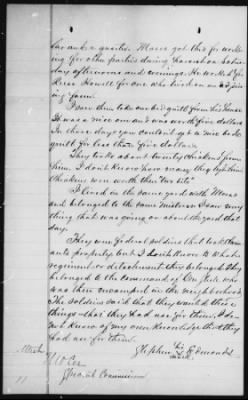 lar and a quarter. Moses got this for work
ing for other parties during harvest on Satur
day afternoons and evenings. He worked for
Reese Howell for one who lived on an adjoin
ing farm.
I saw them take one bed quilt from his house.
It was a nice one and was worth five dollars.
In those days you couldn't get a nice bed
quilt for less than five dollars.
They took about twenty chickens from
him. I don't know how many they left him.
Chickens were worth then "two bits".
I lived in the same yard with Moses
and belonged to the same mistress. I saw every
thing that was going on about the yard that
day.
They were Federal soldiers that took Moses
property but I don't know to what
regiment or detachment they belonged. They
belonged to the command of Gen. who
was then encamped in the neighborhood.
The soldiers said that they wanted these
things that they had use for them. I do
not know of my own knowledge that they
had use for them.
Stephen his Edmonds
mark
Attest
Special Commissioner
11